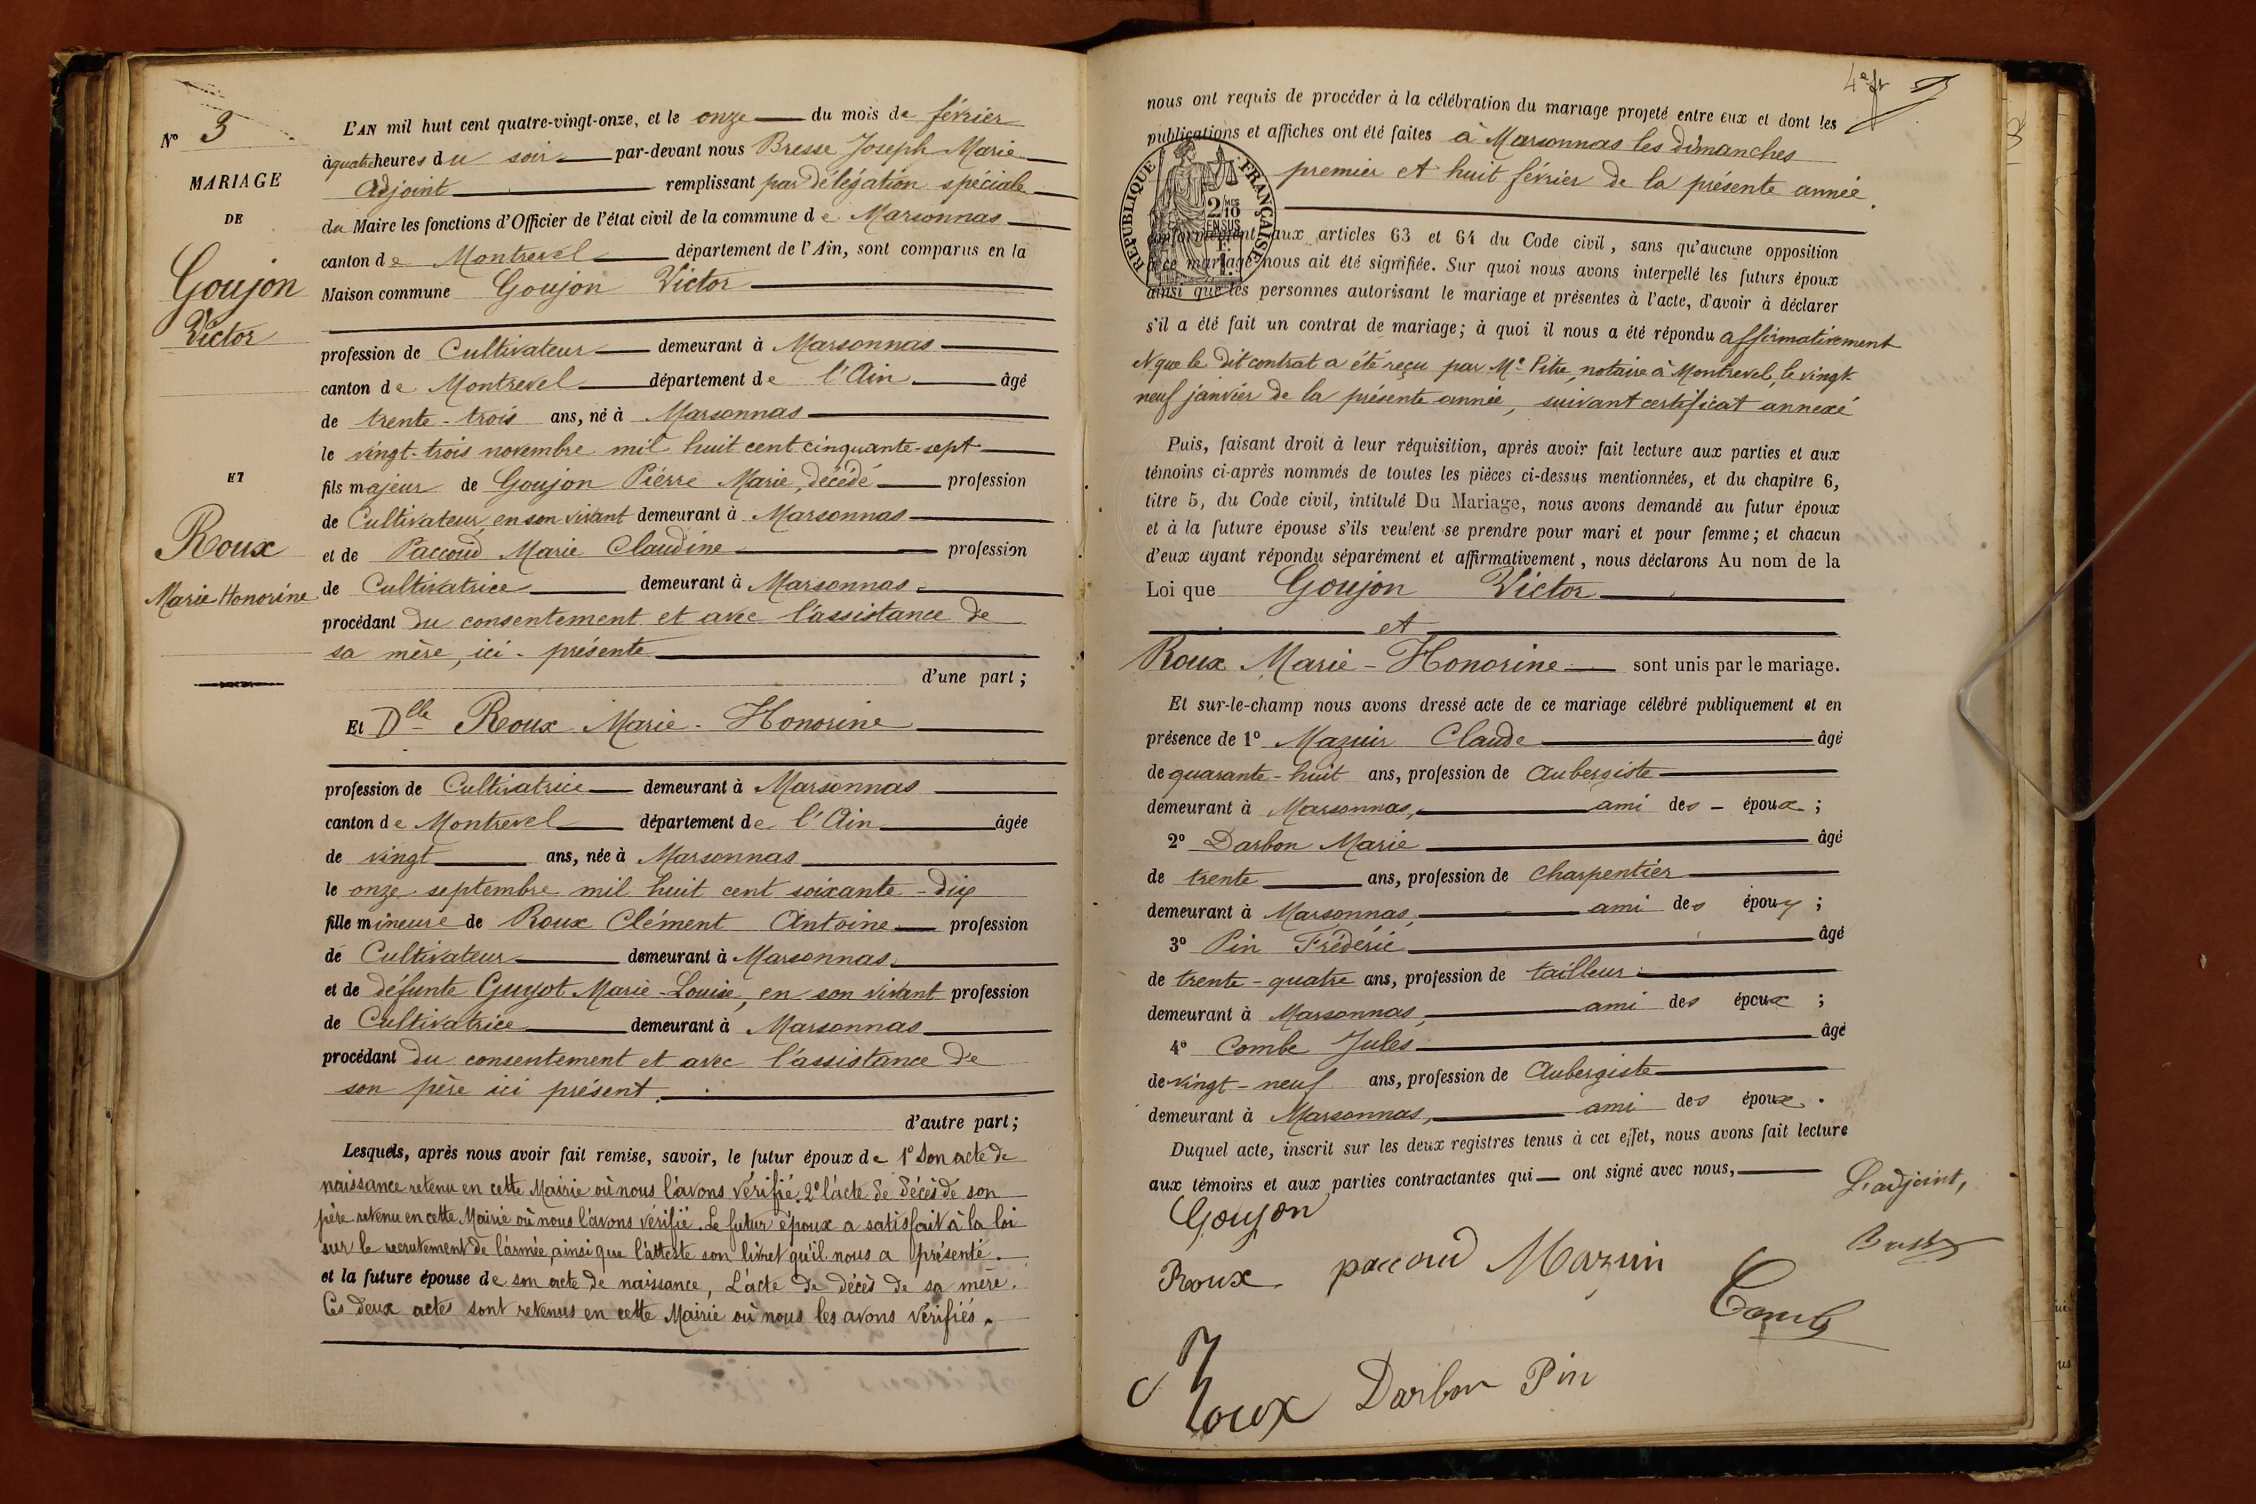 N° 3
MARIAGE
DE
Goujon
Victor
ET
Roux
Marie Honorine
L'AN mil huit cent quatre-vingt-onze, et le onze du mois de février
à quatre heures du soir par-devant nous Bresse Joseph Marie
Adjoint remplissant par délégation spéciale
du Maire les fonctions d'Officier de l'état civil de la commune de Marsonnas
canton de Montrevel département de l'Ain, sont comparus en la
Maison commune Goujon Victor
profession de Cultivateur demeurant à Marsonnas
canton de Montrevel département de l'Ain âgé
de trente-trois ans, né à Marsonnas
le vingt-trois novembre mil huit cent cinquante-sept
fils majeur de Goujon Pierre Marie, décédé profession
de Cultivateur en son vivant demeurant à Marsonnas
et de Paccoud Marie Claudine profession
de Cultivatrice demeurant à Marsonnas
procédant du consentement et avec l'assistance de
sa mère, ici-présente
d'une part ;
Et Dlle Roux Marie-Honorine
profession de Cultivatrice demeurant à Marsonnas
canton de Montrevel département de l'Ain âgée
de vingt ans, née à Marsonnas
le onze septembre mil huit cent soixante-dix
fille mineure de Roux Clément Antoine profession
de Cultivateur demeurant à Marsonnas
et de défunte Guyot Marie-Louise, en son vivant profession
de Cultivatrice demeurant à Marsonnas
procédant du consentement et avec l'assistance de
son père ici présent.
d'autre part ;
Lesquels, après nous avoir fait remise, savoir, le futur époux de 1° Son acte de
naissance retenu en cette Mairie où nous l'avons vérifié. 2° l'acte de décès de son
père retenu en cette Mairie où nous l'avons vérifié. Le futur époux a satisfait à la loi
sur le recrutement de l'armée, ainsi que l'atteste son livret qu'il nous a présenté.
et la future épouse de son acte de naissance, L'acte de décès de sa mère.
Ces deux actes sont retenus en cette Mairie où nous les avons vérifiés.
nous ont requis de procéder à la célébration du mariage projeté entre eux et dont les
publications et affiches ont été faites à Marsonnas les dimanches
premier et huit février de la présente année.
RÉPUBLIQUE FRANÇAISE
2 10
EN SUS
conformément aux articles 63 et 64 du Code civil, sans qu'aucune opposition
à ce mariage nous ait été signifiée. Sur quoi nous avons interpellé les futurs époux
ainsi que les personnes autorisant le mariage et présentes à l'acte, d'avoir à déclarer
s'il a été fait un contrat de mariage ; à quoi il nous a été répondu affirmativement
et que le dit contrat a été reçu par Me Pitre, notaire à Montrevel, le vingt-
neuf janvier de la présente année, suivant certificat annexé
Puis, faisant droit à leur réquisition, après avoir fait lecture aux parties et aux
témoins ci-après nommés de toutes les pièces ci-dessus mentionnées, et du chapitre 6,
titre 5, du Code civil, intitulé Du Mariage, nous avons demandé au futur époux
et à la future épouse s'ils veulent se prendre pour mari et pour femme ; et chacun
d'eux ayant répondu séparément et affirmativement, nous déclarons Au nom de la
Loi que Goujon Victor
et
Roux Marie-Honorine sont unis par le mariage.
Et sur-le-champ nous avons dressé acte de ce mariage célébré publiquement et en
présence de 1° Mazuir Claude âgé
de quarante-huit ans, profession de Aubergiste
demeurant à Marsonnas, ami des époux ;
2° Darbon Marie âgé
de trente ans, profession de Charpentier
demeurant à Marsonnas, ami des époux ;
3° Pin Frédéric âgé
de trente-quatre ans, profession de tailleur
demeurant à Marsonnas, ami des époux ;
4° Combe Jules âgé
de vingt-neuf ans, profession de Aubergiste
demeurant à Marsonnas, ami des époux.
Duquel acte, inscrit sur les deux registres tenus à cet effet, nous avons fait lecture
aux témoins et aux parties contractantes qui ont signé avec nous,
L'adjoint,
Goujon
Roux paccoud Mazuir
Roux Darbon Pin